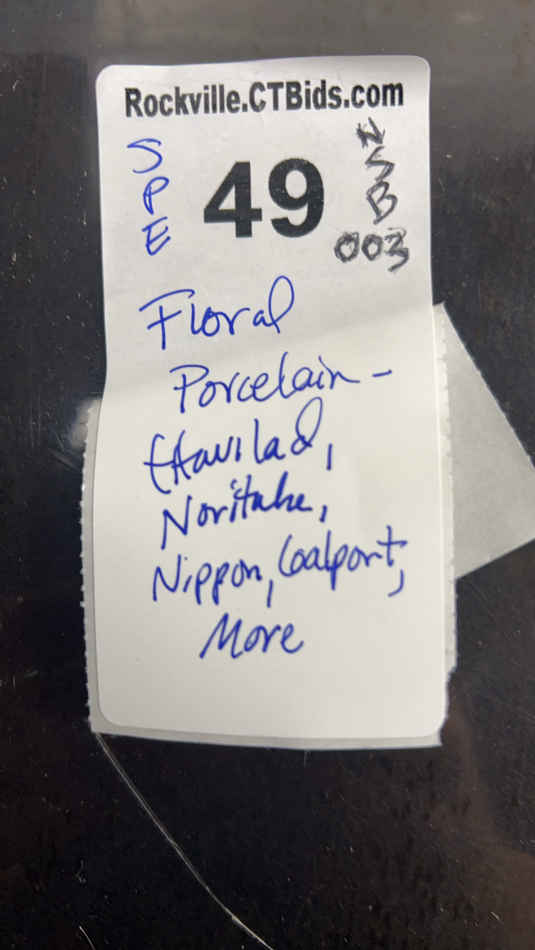 Rockville.CTBids.com
SPE
49
NSB
003
Floral
Porcelain -
Havilad,
Noritake,
Nippon, Coalport,
More